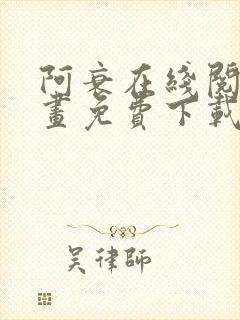 阿衰在线阅
画免费下载
吴律师